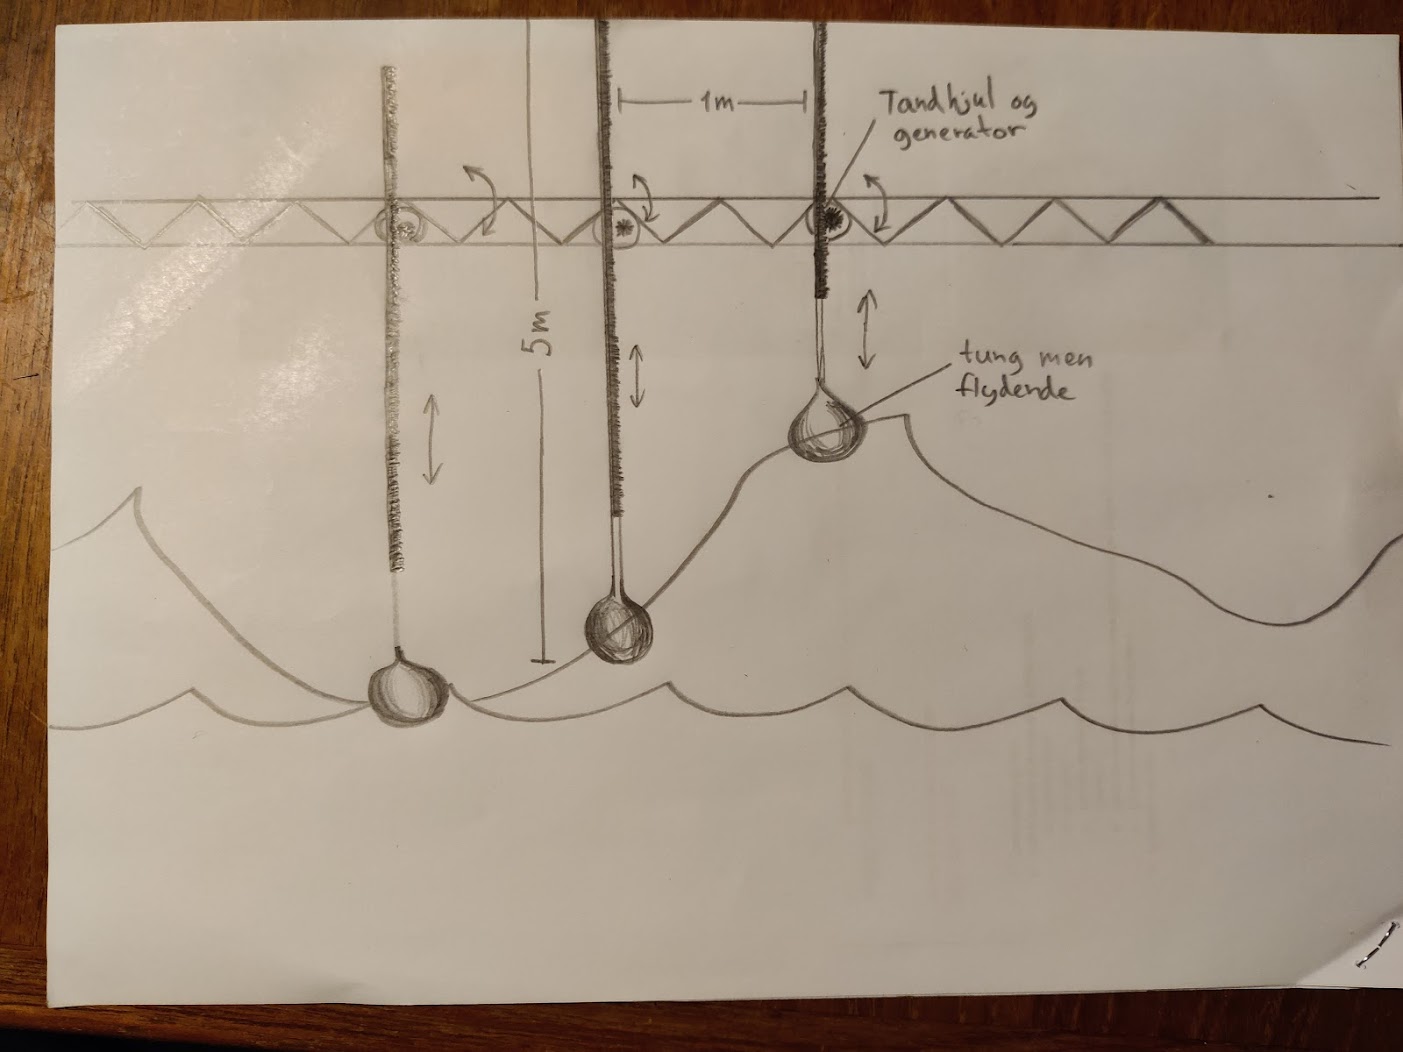 1m
Tandhjul og
generator
5m
tung men
flydende